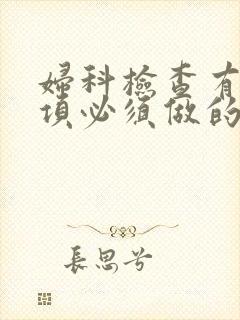 婦科檢查有
項必須做的
長思兮